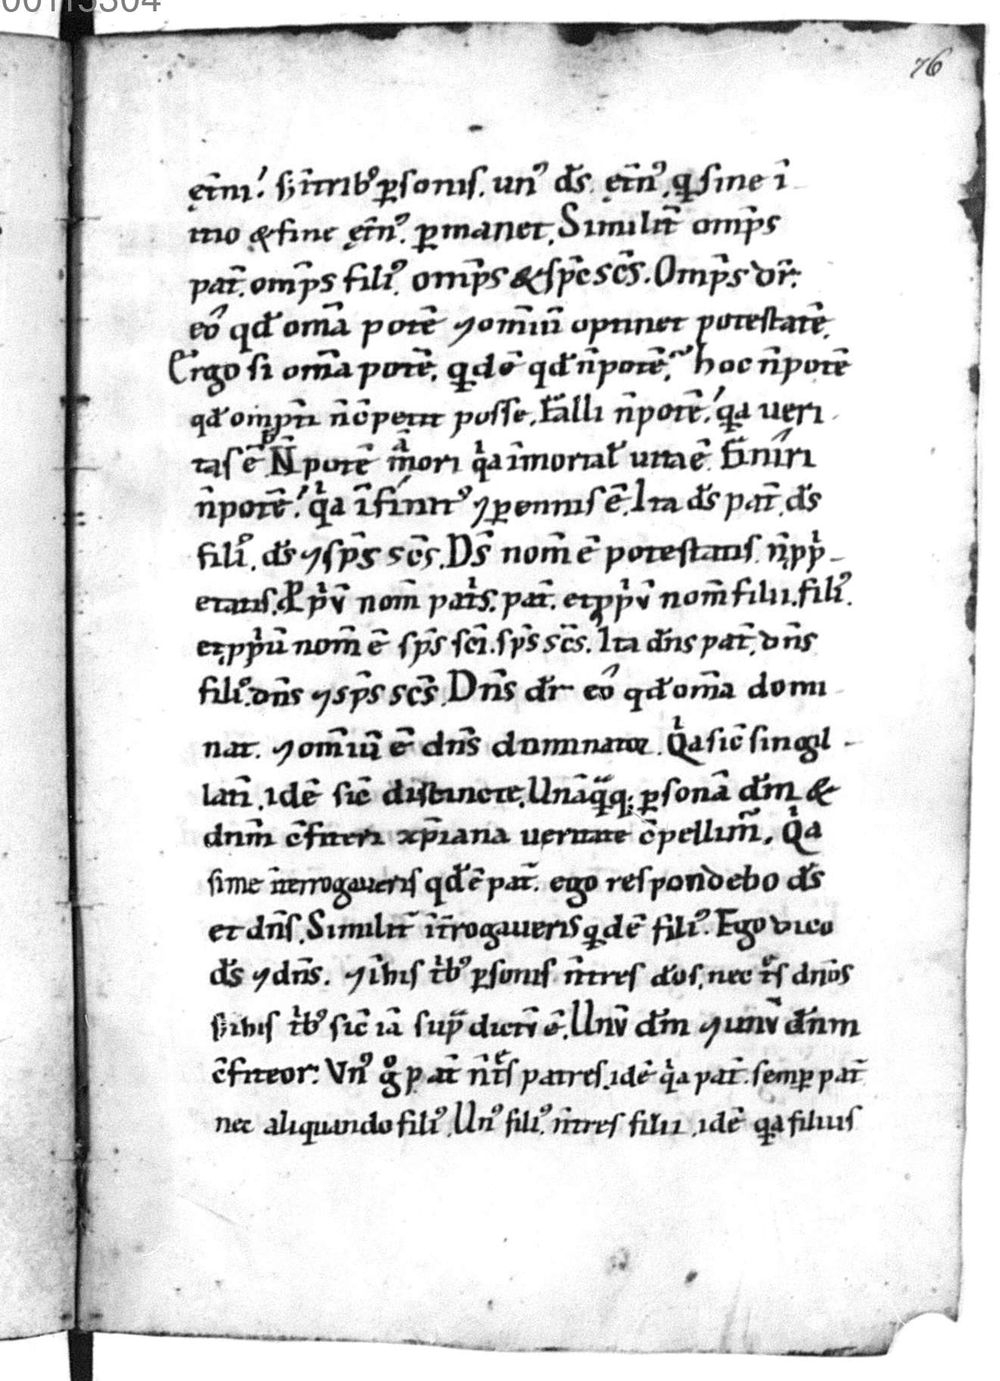 00115304
76
ęt̄ni. s; ī trib᷒ ꝑsonis. un᷒ d̄s. ęt̄n᷒. q̇ sine i
nio & fine ęt̄n᷒. ꝑmanet. Similit̄ omp̄s
pat̄. omp̄s fili᷒. omp̄s & sp̄c sc̄s. Omp̄s dr̄.
eo qd̄ om̄a potē ⁊ om̄iū optinet potestatē.
Ergo si om̄a potē. qd ē qd̄ n̄ potē. hoc n̄ potē
qd̄ omp̄ti n̄ c̄petit posse. falli n̄ potē. qa ueri
tas ē. N̄ potē mori qa īmortal̄ uita ē. finiri
n̄ potē. qa īfinit᷒ ⁊ ꝑennis ē. Ita d̄s pat̄. d̄s
fili᷒. d̄s ⁊ sp̄s sc̄s. D̄s nom̄ ē potestatis. n̄ pp
etatis. pp̄ū nom̄ pat̄s. pat̄. et pp̄ū nom̄ filii. fili᷒.
et pp̄ū nom̄ ē sp̄s sc̄i. sp̄s sc̄s. Ita dn̄s pat̄. dn̄s
fili᷒. dn̄s ⁊ sp̄s sc̄s. Dn̄s dr̄ eo qd̄ om̄a domi
nat. ⁊ om̄iū ē dn̄s dominatoꝝ. Qa sic̄ singil
latī. idē sic̄ distincte. Unāqq; ꝑsonā dm̄ &
dnm̄ c̄fiteri xp̄iana ueritate c̄pellim᷒. Qa
si me īterrogaueris qd̄ ē pat̄. ego respondebo d̄s
et dn̄s. Similit̄ īt̄rogaueris qd ē fili᷒. Ego dico
d̄s ⁊ dn̄s. ⁊ ī his tb᷒ ꝑsonis n̄ tres d̄os. nec ts dn̄os
s; ī his tb᷒ sic̄ iā sup̄ dictū ē. Unū dm̄ ⁊ unū dn̄m
c̄fiteor. Vn᷒ g̊ pat̄ n̄ ts patres. idē qa pat̄. semꝑ pat̄
nec aliquando fili᷒. Un᷒ fili᷒. n̄ tres filii. idē qa filius